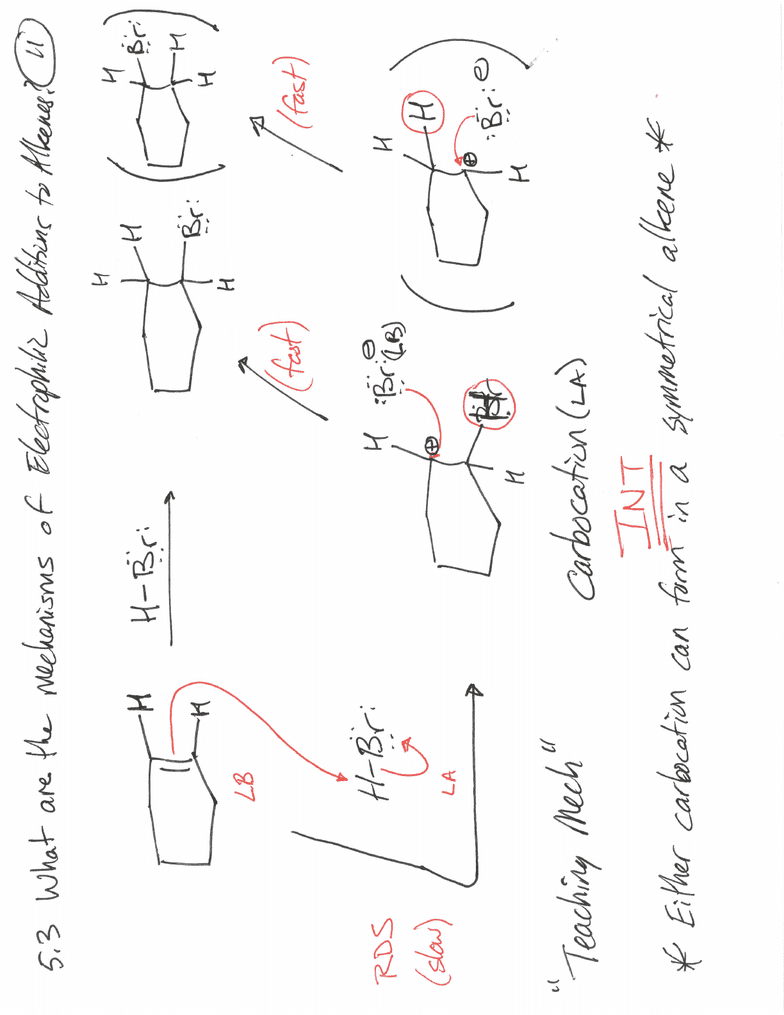 5.3 What are the Mechanisms of Electrophilic Additions to Alkenes? 11
H H
H-Br:
H H Br: H
H Br: H H
LB
RDS (slow)
H-Br:
LA
(fast)
(fast)
H ⊕ :Br: ⊖ (LB)
H H
H H ⊕ :Br: ⊖
H
"Teaching Mech"
Carbocation (LA)
INT
* Either carbocation can form in a symmetrical alkene *